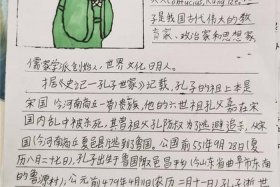 子是我国古代伟大的教
育家、政治家和思想家,
儒家学派创始人,世界文化名人。
据《史记—孔子世家》记载,孔子的祖上是
宋国(今河南商丘一带)贵族,他的六世祖孔父嘉在宋
国内乱中被杀死,其曾祖父孔防叔为了逃避追杀,从宋
国(今河南商丘 逃到鲁国。公元前551年9月28日(夏
历八月二十七日),孔子出生于鲁国陬邑昌平乡(今山东省曲阜市东南
的鲁源村);公元前479年4月11日(农历二月十一日),孔子逝世